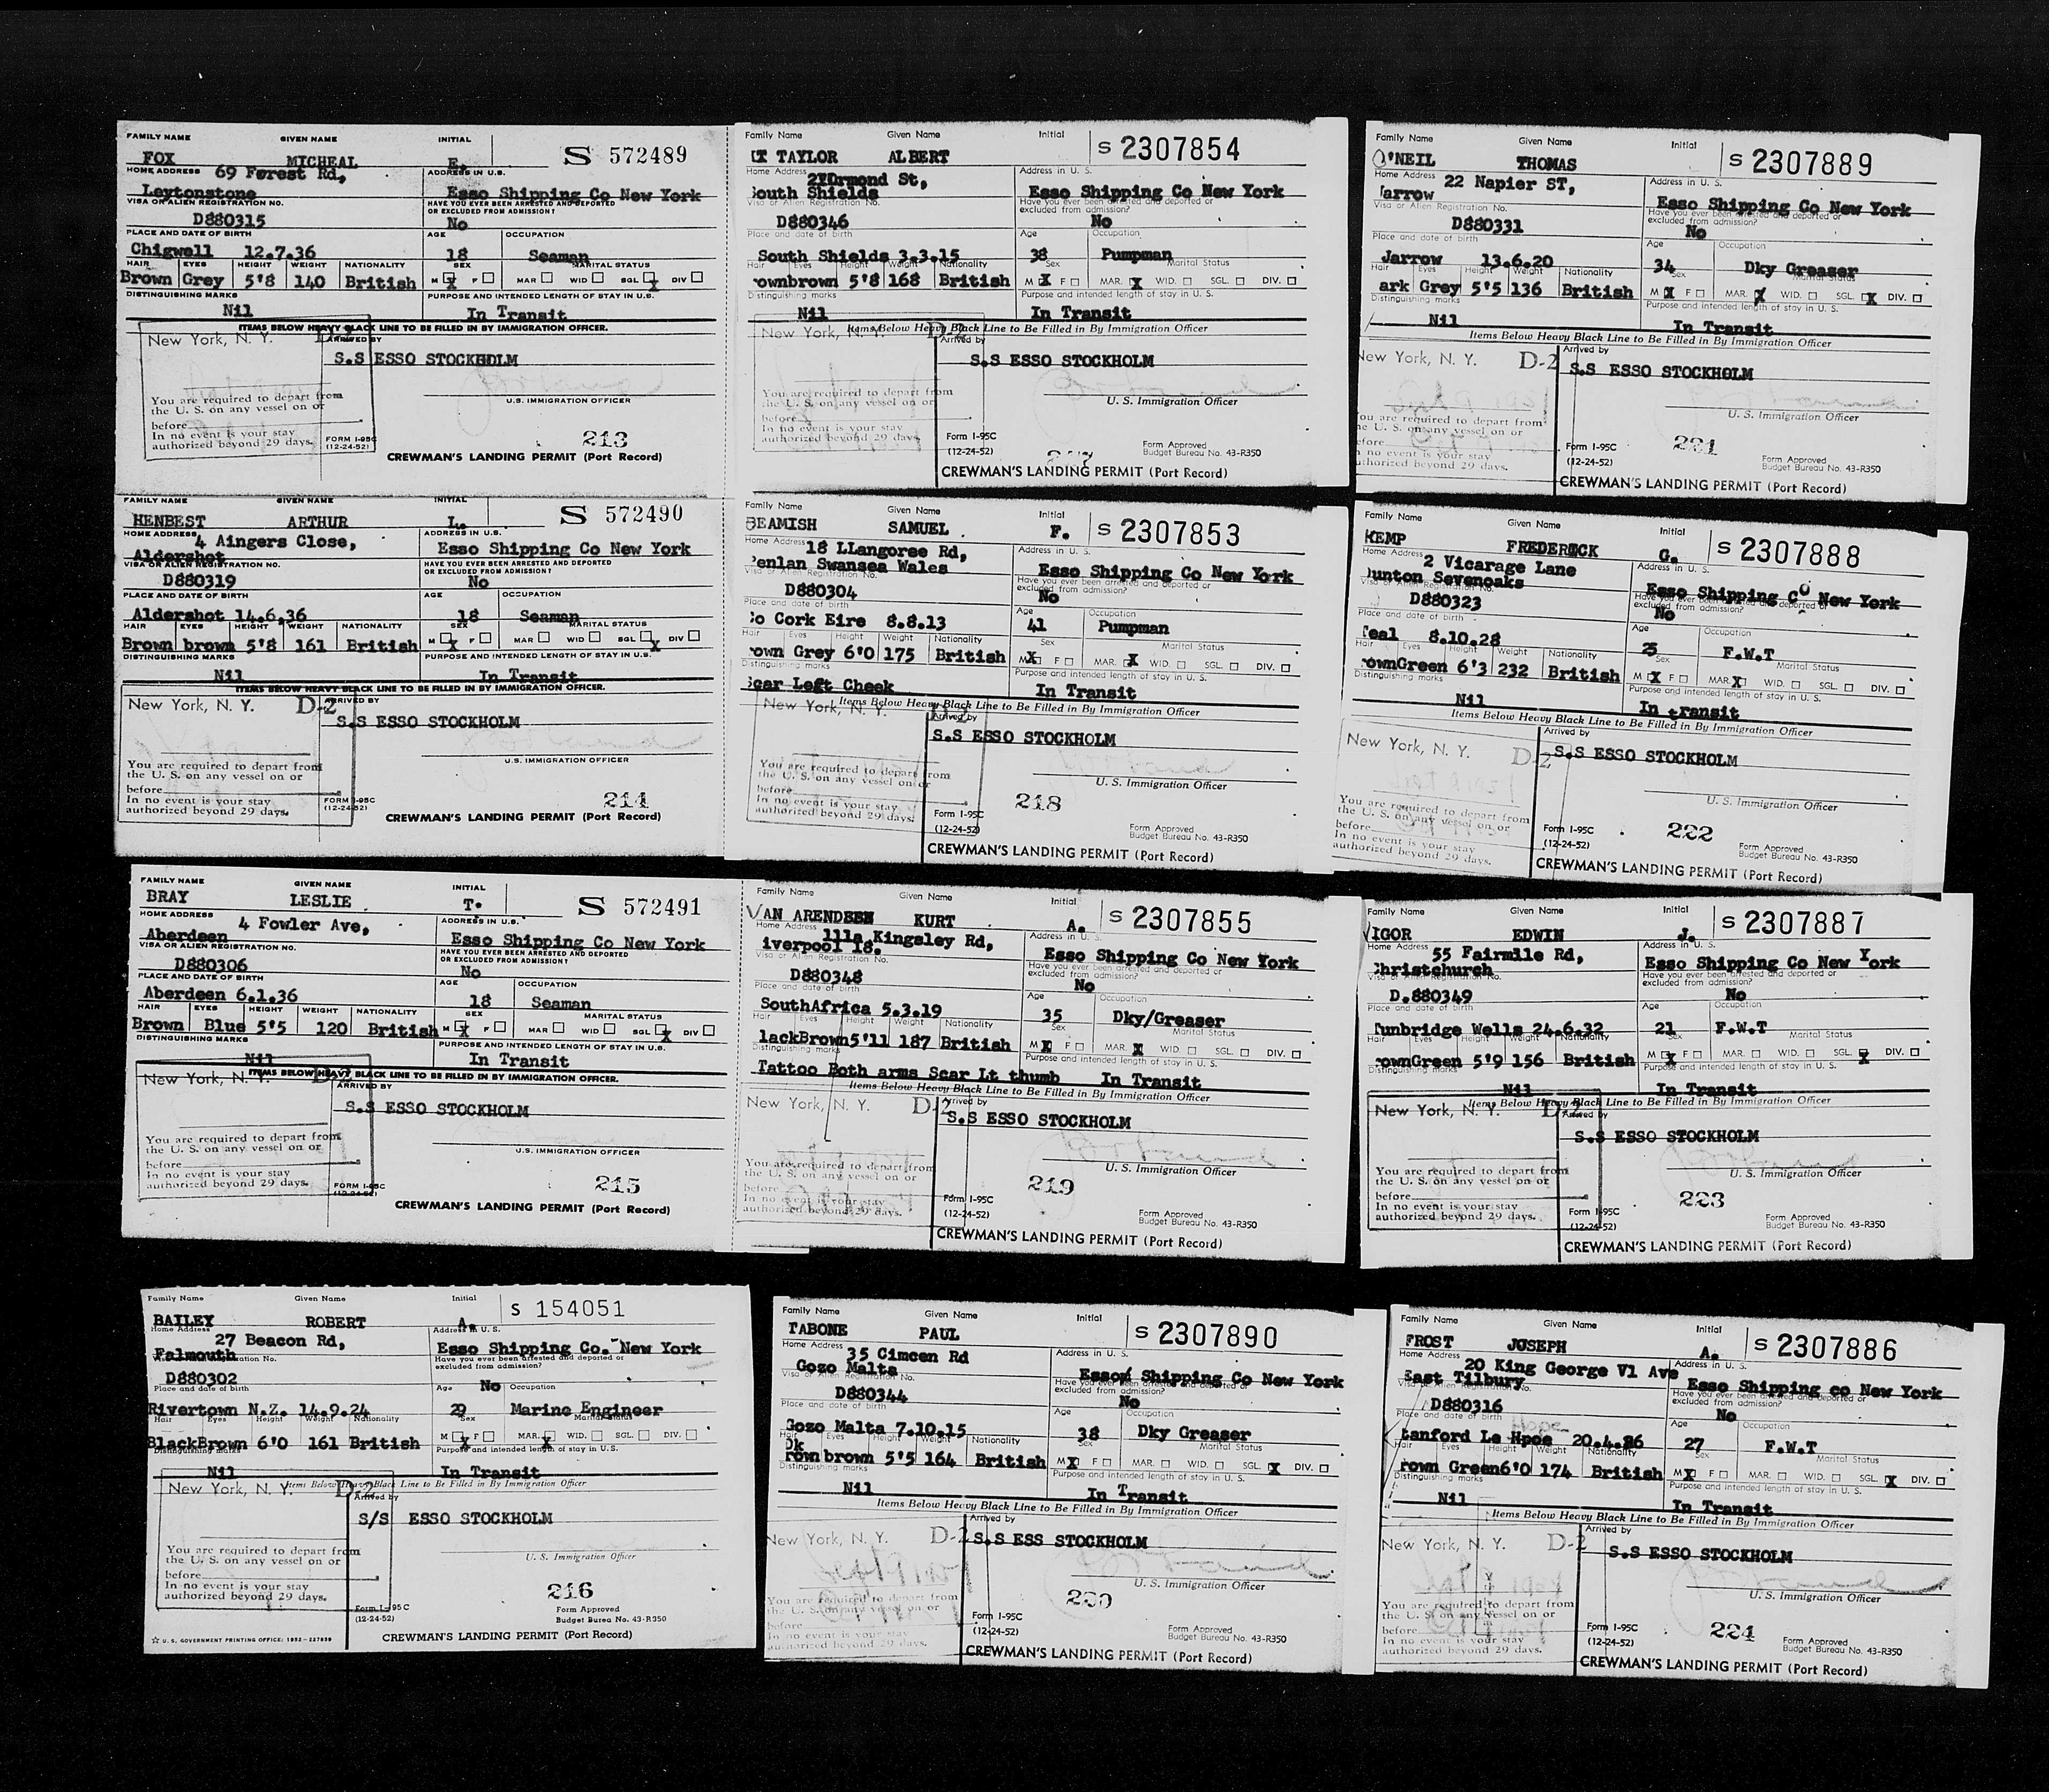 FAMILY NAME GIVEN NAME INITIAL
FOX MICHEAL E. S 572489
HOME ADDRESS 69 Forest Rd, ADDRESS IN U.S.
Leytonstone Esso Shipping Co New York
VISA OR ALIEN REGISTRATION NO. HAVE YOU EVER BEEN ARRESTED AND DEPORTED
OR EXCLUDED FROM ADMISSION?
D880315 No
PLACE AND DATE OF BIRTH AGE OCCUPATION
Chigwell 12.7.36 18 Seaman
HAIR EYES HEIGHT WEIGHT NATIONALITY SEX MARITAL STATUS
Brown Grey 5'8 140 British M X F MAR WID SGL X DIV
DISTINGUISHING MARKS PURPOSE AND INTENDED LENGTH OF STAY IN U.S.
Nil In Transit
ITEMS BELOW HEAVY BLACK LINE TO BE FILLED IN BY IMMIGRATION OFFICER.
New York, N. Y. ARRIVED BY
S.S ESSO STOCKHOLM
You are required to depart from
the U. S. on any vessel on or
before
In no event is your stay
authorized beyond 29 days.
U.S. IMMIGRATION OFFICER
FORM I-95C
(12-24-52)
213
CREWMAN'S LANDING PERMIT (Port Record)
FAMILY NAME GIVEN NAME INITIAL
HENBEST ARTHUR L. S 572490
HOME ADDRESS 4 Aingers Close, ADDRESS IN U.S.
Aldershot Esso Shipping Co New York
VISA OR ALIEN REGISTRATION NO. HAVE YOU EVER BEEN ARRESTED AND DEPORTED
OR EXCLUDED FROM ADMISSION?
D880319 No
PLACE AND DATE OF BIRTH AGE OCCUPATION
Aldershot 14.6.36 18 Seaman
HAIR EYES HEIGHT WEIGHT NATIONALITY SEX MARITAL STATUS
Brown brown 5'8 161 British M X F MAR WID SGL X DIV
DISTINGUISHING MARKS PURPOSE AND INTENDED LENGTH OF STAY IN U.S.
Nil In Transit
ITEMS BELOW HEAVY BLACK LINE TO BE FILLED IN BY IMMIGRATION OFFICER.
New York, N. Y. D-2 ARRIVED BY
S.S ESSO STOCKHOLM
You are required to depart from
the U. S. on any vessel on or
before
In no event is your stay
authorized beyond 29 days.
U.S. IMMIGRATION OFFICER
FORM I-95C
(12-24-52)
214
CREWMAN'S LANDING PERMIT (Port Record)
FAMILY NAME GIVEN NAME INITIAL
BRAY LESLIE T. S 572491
HOME ADDRESS 4 Fowler Ave, ADDRESS IN U.S.
Aberdeen Esso Shipping Co New York
VISA OR ALIEN REGISTRATION NO. HAVE YOU EVER BEEN ARRESTED AND DEPORTED
OR EXCLUDED FROM ADMISSION?
D880306 No
PLACE AND DATE OF BIRTH AGE OCCUPATION
Aberdeen 6.1.36 18 Seaman
HAIR EYES HEIGHT WEIGHT NATIONALITY SEX MARITAL STATUS
Brown Blue 5'5 120 British M X F MAR WID SGL X DIV
DISTINGUISHING MARKS PURPOSE AND INTENDED LENGTH OF STAY IN U.S.
Nil In Transit
ITEMS BELOW HEAVY BLACK LINE TO BE FILLED IN BY IMMIGRATION OFFICER.
New York, N. Y. ARRIVED BY
S.S ESSO STOCKHOLM
You are required to depart from
the U. S. on any vessel on or
before
In no event is your stay
authorized beyond 29 days.
U.S. IMMIGRATION OFFICER
FORM I-95C
(12-24-52)
215
CREWMAN'S LANDING PERMIT (Port Record)
Family Name Given Name Initial
BAILEY ROBERT A. S 154051
Home Address 27 Beacon Rd, Address in U.S.
Falmouth Esso Shipping Co. New York
Have you ever been arrested and deported or
excluded from admission?
D880302 No
Place and date of birth Age Occupation
Rivertown N.Z. 14.9.24 29 Marine Engineer
Hair Eyes Height Weight Nationality Sex Marital Status
BlackBrown 6'0 161 British M X F MAR. X WID. SGL. DIV.
Distinguishing marks Purpose and intended length of stay in U.S.
Nil In Transit
Items Below Heavy Black Line to Be Filled in By Immigration Officer
New York, N. Y. D-2 Arrived by
S/S ESSO STOCKHOLM
You are required to depart from
the U. S. on any vessel on or
before
In no event is your stay
authorized beyond 29 days.
U. S. Immigration Officer
Form I-95C
(12-24-52)
216
Form Approved
Budget Burea No. 43-R350
☆ U. S. GOVERNMENT PRINTING OFFICE: 1952—227859
CREWMAN'S LANDING PERMIT (Port Record)
Family Name Given Name Initial
TAYLOR ALBERT S 2307854
Home Address Ormond St, Address in U. S.
South Shields Esso Shipping Co New York
Visa or Alien Registration No. Have you ever been arrested and deported or
excluded from admission?
D880346 No
Place and date of birth Age Occupation
South Shields 3.3.15 38 Pumpman
Hair Eyes Height Weight Nationality Sex Marital Status
ownbrown 5'8 168 British M X F MAR. X WID. SGL. DIV.
Distinguishing marks Purpose and intended length of stay in U. S.
Nil In Transit
Items Below Heavy Black Line to Be Filled in By Immigration Officer
New York, N. Y. Arrived by
S.S ESSO STOCKHOLM
You are required to depart from
the U. S. on any vessel on or
before
In no event is your stay
authorized beyond 29 days.
U. S. Immigration Officer
Form I-95C
(12-24-52)
Form Approved
Budget Bureau No. 43-R350
CREWMAN'S LANDING PERMIT (Port Record)
Family Name Given Name Initial
BEAMISH SAMUEL F. S 2307853
Home Address 18 LLangoree Rd, Address in U. S.
enlan Swansea Wales Esso Shipping Co New York
Visa or Alien Registration No. Have you ever been arrested and deported or
excluded from admission?
D880304 No
Place and date of birth Age Occupation
Co Cork Eire 8.8.13 41 Pumpman
Hair Eyes Height Weight Nationality Sex Marital Status
rown Grey 6'0 175 British M X F MAR. X WID. SGL. DIV.
Distinguishing marks Purpose and intended length of stay in U. S.
Scar Left Cheek In Transit
Items Below Heavy Black Line to Be Filled in By Immigration Officer
New York, N. Y. Arrived by
S.S ESSO STOCKHOLM
You are required to depart from
the U. S. on any vessel on or
before
In no event is your stay
authorized beyond 29 days.
U. S. Immigration Officer
218
Form I-95C
(12-24-52)
Form Approved
Budget Bureau No. 43-R350
CREWMAN'S LANDING PERMIT (Port Record)
Family Name Given Name Initial
VAN ARENDSEN KURT A. S 2307855
Home Address 111a Kingsley Rd, Address in U. S.
iverpool 18. Esso Shipping Co New York
Visa or Alien Registration No. Have you ever been arrested and deported or
excluded from admission?
D880348 No
Place and date of birth Age Occupation
SouthAfrica 5.3.19 35 Dky/Greaser
Hair Eyes Height Weight Nationality Sex Marital Status
lackBrown5'11 187 British M X F MAR. X WID. SGL. DIV.
Distinguishing marks Purpose and intended length of stay in U. S.
Tattoo Both arms Scar Lt thumb In Transit
Items Below Heavy Black Line to Be Filled in By Immigration Officer
New York, N. Y. D-2 Arrived by
S.S ESSO STOCKHOLM
You are required to depart from
the U. S. on any vessel on or
before
In no event is your stay
authorized beyond 29 days.
U. S. Immigration Officer
219
Form I-95C
(12-24-52)
Form Approved
Budget Bureau No. 43-R350
CREWMAN'S LANDING PERMIT (Port Record)
Family Name Given Name Initial
TABONE PAUL S 2307890
Home Address 35 Cimcen Rd Address in U. S.
Gozo Malta Esso Shipping Co New York
Visa or Alien Registration No. Have you ever been arrested and deported or
excluded from admission?
D880344 No
Place and date of birth Age Occupation
Gozo Malta 7.10.15 38 Dky Greaser
Hair Eyes Height Weight Nationality Sex Marital Status
Dk
rown brown 5'5 164 British M X F MAR. WID. SGL. X DIV.
Distinguishing marks Purpose and intended length of stay in U. S.
Nil In Transit
Items Below Heavy Black Line to Be Filled in By Immigration Officer
New York, N. Y. D-2 Arrived by
S.S ESS STOCKHOLM
You are required to depart from
the U. S. on any vessel on or
before
In no event is your stay
authorized beyond 29 days.
U. S. Immigration Officer
220
Form I-95C
(12-24-52)
Form Approved
Budget Bureau No. 43-R350
CREWMAN'S LANDING PERMIT (Port Record)
Family Name Given Name Initial
O'NEIL THOMAS S 2307889
Home Address 22 Napier ST, Address in U. S.
Jarrow Esso Shipping Co New York
Visa or Alien Registration No. Have you ever been arrested and deported or
excluded from admission?
D880331 No
Place and date of birth Age Occupation
Jarrow 13.6.20 34 Dky Greaser
Hair Eyes Height Weight Nationality Sex Marital Status
ark Grey 5'5 136 British M X F MAR. X WID. SGL. X DIV.
Distinguishing marks Purpose and intended length of stay in U. S.
Nil In Transit
Items Below Heavy Black Line to Be Filled in By Immigration Officer
New York, N. Y. D-2 Arrived by
S.S ESSO STOCKHOLM
You are required to depart from
the U. S. on any vessel on or
before
In no event is your stay
authorized beyond 29 days.
U. S. Immigration Officer
221
Form I-95C
(12-24-52)
Form Approved
Budget Bureau No. 43-R350
CREWMAN'S LANDING PERMIT (Port Record)
Family Name Given Name Initial
KEMP FREDERICK G. S 2307888
Home Address 2 Vicarage Lane Address in U. S.
Dunton Sevenoaks Esso Shipping Co New York
Visa or Alien Registration No. Have you ever been arrested and deported or
excluded from admission?
D880323 No
Place and date of birth Age Occupation
Deal 8.10.28 25 F.W.T
Hair Eyes Height Weight Nationality Sex Marital Status
rownGreen 6'3 232 British M X F MAR. X WID. SGL. DIV.
Distinguishing marks Purpose and intended length of stay in U. S.
Nil In transit
Items Below Heavy Black Line to Be Filled in By Immigration Officer
New York, N. Y. D-2 Arrived by
S.S ESSO STOCKHOLM
You are required to depart from
the U. S. on any vessel on or
before
In no event is your stay
authorized beyond 29 days.
U. S. Immigration Officer
222
Form I-95C
(12-24-52)
Form Approved
Budget Bureau No. 43-R350
CREWMAN'S LANDING PERMIT (Port Record)
Family Name Given Name Initial
VIGOR EDWIN J. S 2307887
Home Address 55 Fairmile Rd, Address in U. S.
Christchurch Esso Shipping Co New York
Visa or Alien Registration No. Have you ever been arrested and deported or
excluded from admission?
D.880349 No
Place and date of birth Age Occupation
Tunbridge Wells 24.6.32 21 F.W.T
Hair Eyes Height Weight Nationality Sex Marital Status
rownGreen 5'9 156 British M X F MAR. WID. SGL. X DIV.
Distinguishing marks Purpose and intended length of stay in U. S.
Nil In Transit
Items Below Heavy Black Line to Be Filled in By Immigration Officer
New York, N. Y. Arrived by
S.S ESSO STOCKHOLM
You are required to depart from
the U. S. on any vessel on or
before
In no event is your stay
authorized beyond 29 days.
U. S. Immigration Officer
223
Form I-95C
(12-24-52)
Form Approved
Budget Bureau No. 43-R350
CREWMAN'S LANDING PERMIT (Port Record)
Family Name Given Name Initial
FROST JOSEPH A. S 2307886
Home Address 20 King George V1 Ave Address in U. S.
East Tilbury Esso Shipping co New York
Visa or Alien Registration No. Have you ever been arrested and deported or
excluded from admission?
D880316 No
Place and date of birth Age Occupation
Hope
tanford Le Hpoe 20.4.26 27 F.W.T
Hair Eyes Height Weight Nationality Sex Marital Status
rown Green6'0 174 British M X F MAR. WID. SGL. X DIV.
Distinguishing marks Purpose and intended length of stay in U. S.
Nil In Transit
Items Below Heavy Black Line to Be Filled in By Immigration Officer
New York, N. Y. D-2 Arrived by
S.S ESSO STOCKHOLM
You are required to depart from
the U. S. on any vessel on or
before
In no event is your stay
authorized beyond 29 days.
U. S. Immigration Officer
224
Form I-95C
(12-24-52)
Form Approved
Budget Bureau No. 43-R350
CREWMAN'S LANDING PERMIT (Port Record)